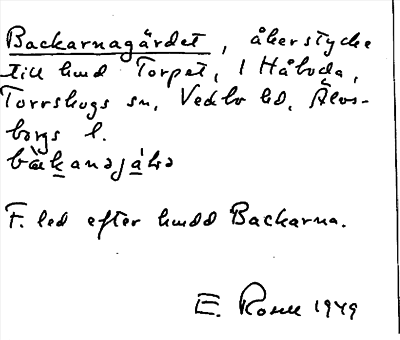 Backarnagärdet, åkerstycke
till hmd Torpet, 1 Håboda,
Torrskogs sn, Vedbo hd, Älvs-
borgs l.
F. led efter hmdd Backarna.
E. Rosell 1949